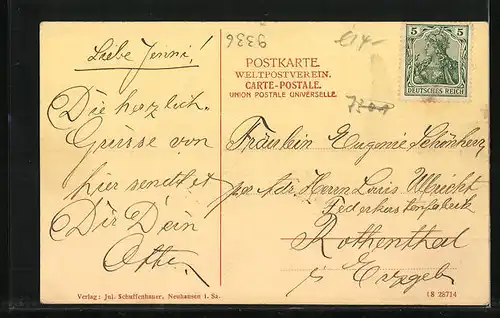 9336
£14-
POSTKARTE.
WELTPOSTVEREIN.
CARTE-POSTALE.
UNION POSTALE UNIVERSELLE.
5 5
DEUTSCHES REICH
Liebe Jenni!
Die herzlich.
Grüsse von
hier sendet
Dir Dein
Fräulein Eugenie Schönherr
per Adr. Herrn Louis Ulbricht
Federkastenfabrik
Rothenthal
i/ Erzgeb
Verlag: Jul. Schuffenhauer, Neuhausen i. Sa.
18 28714